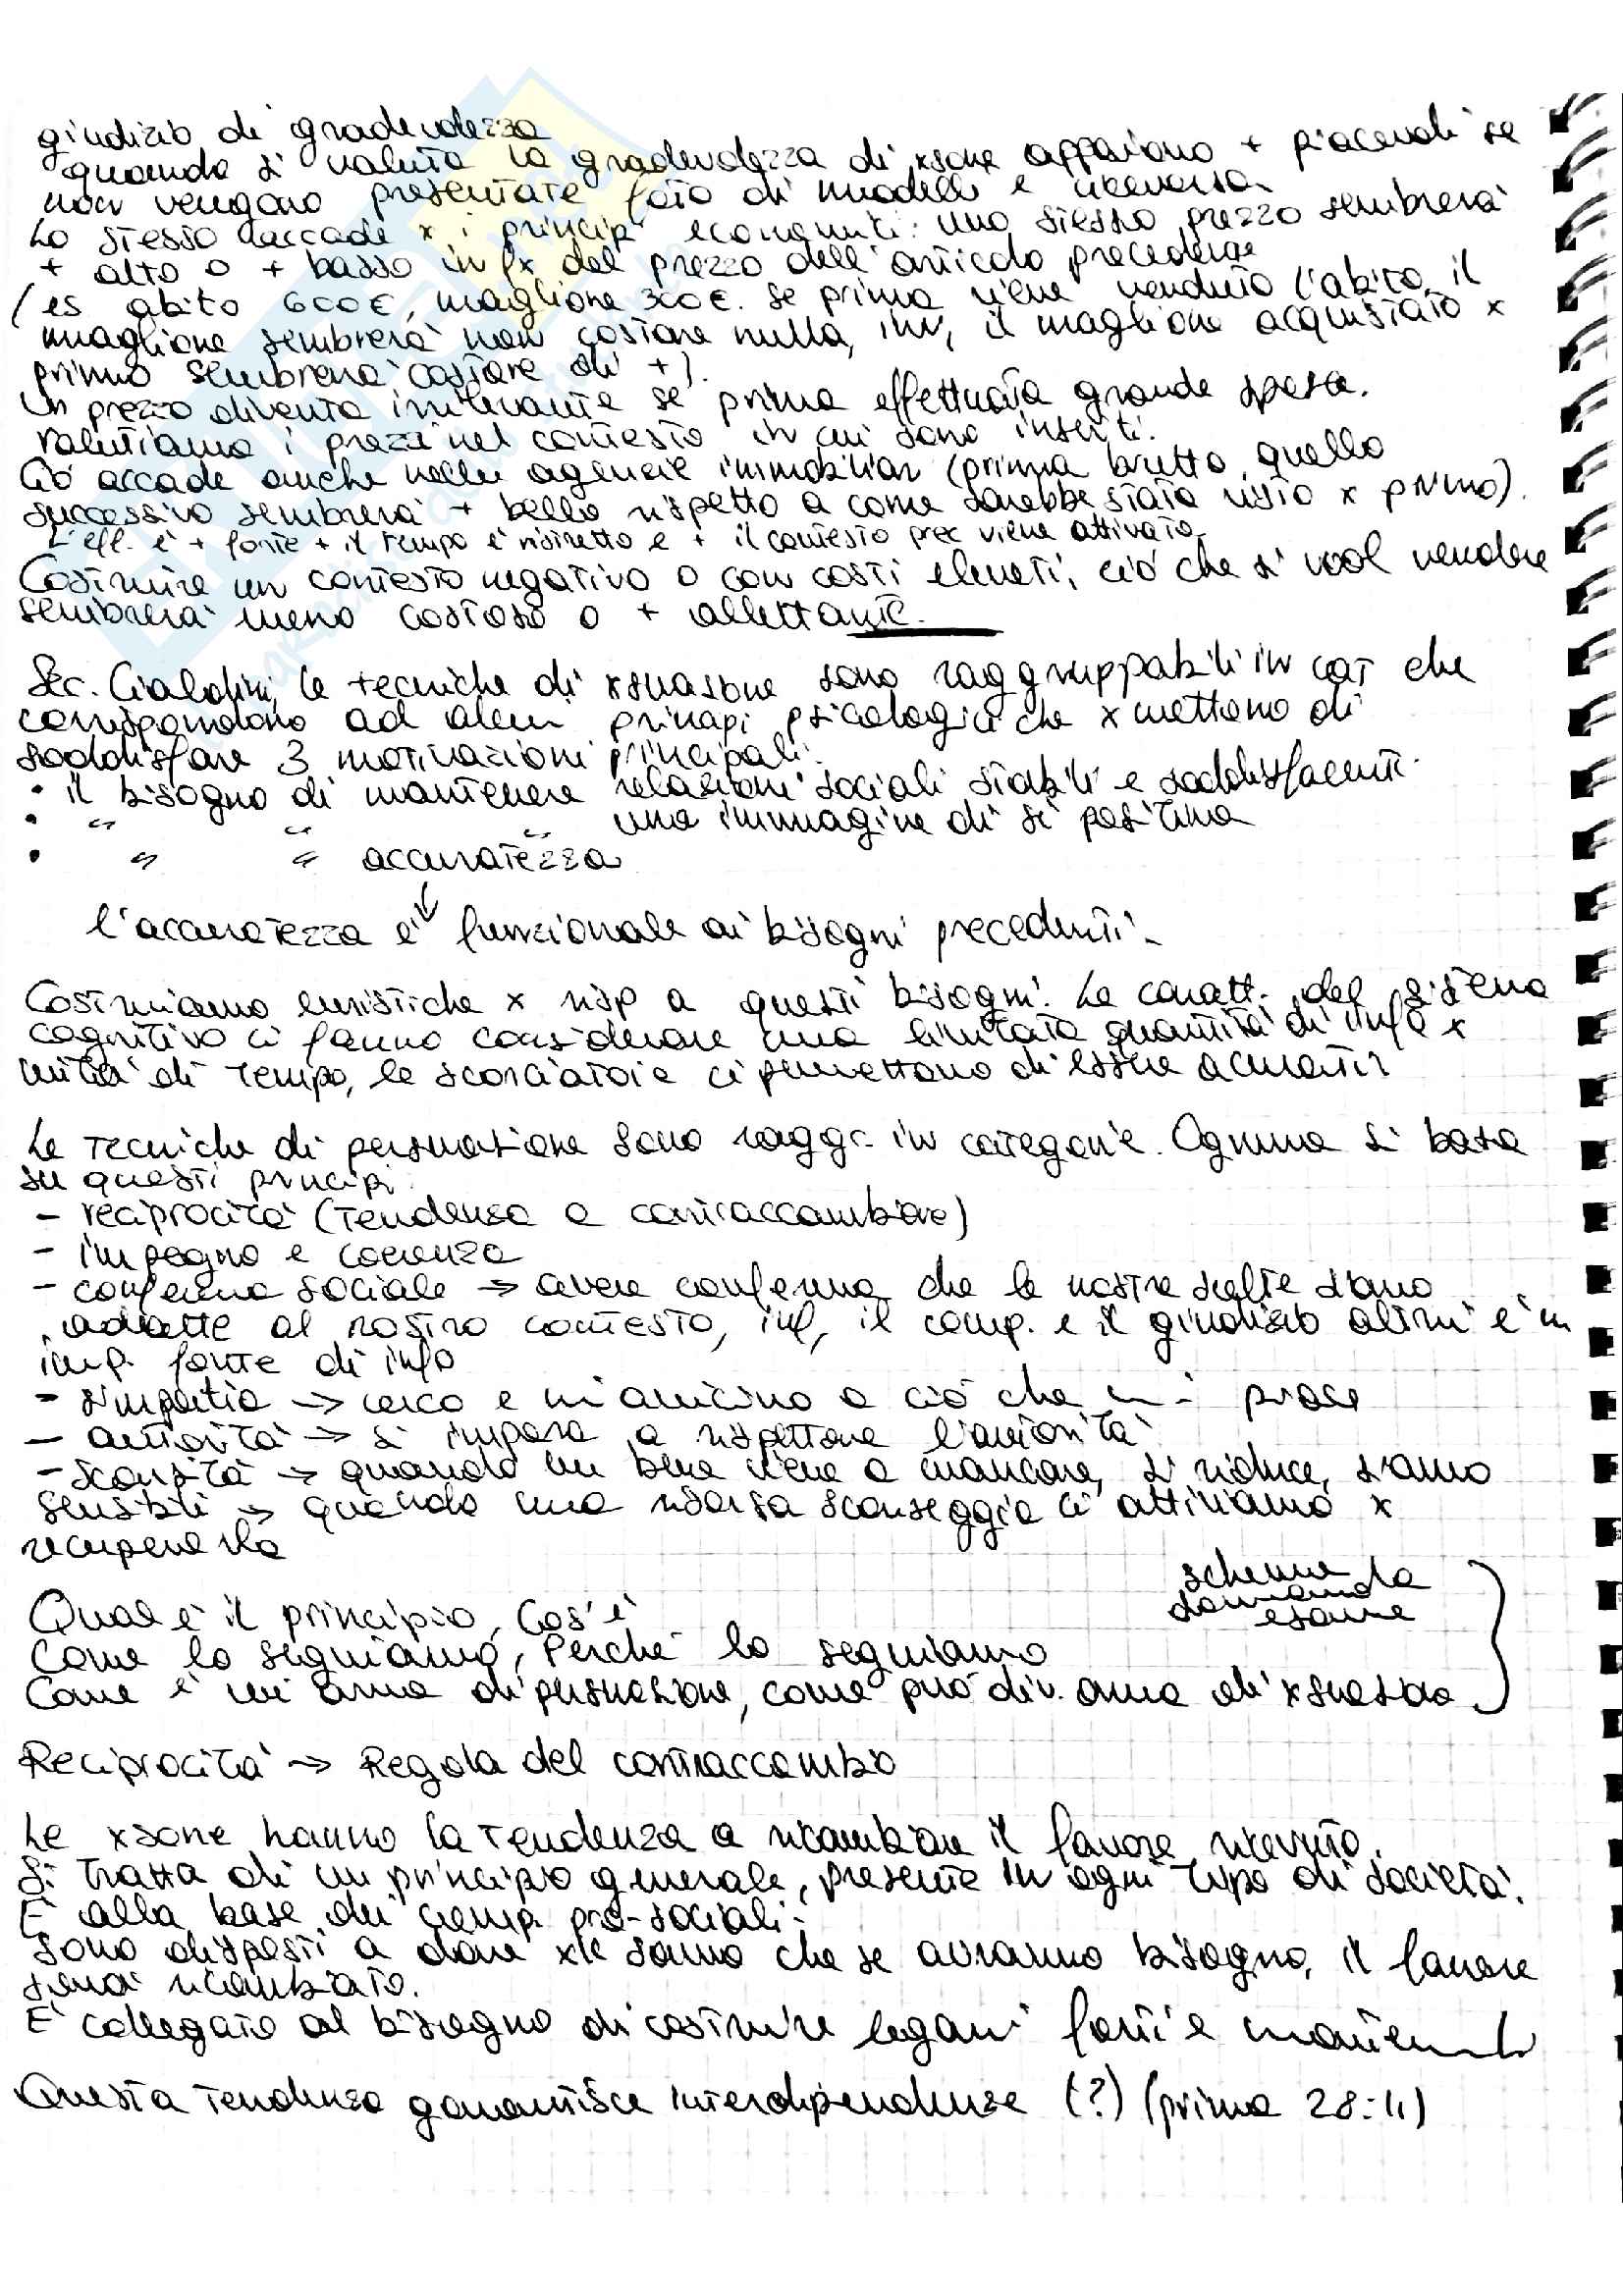 giudizio di gradevolezza
quando si valuta la gradevolezza di xsone appaiono + piacevoli se
non vengono presentate foto di modelle e viceversa
Lo stesso accade x i principi economici: uno stesso prezzo sembrerà
+ alto o + basso in fx del prezzo dell'articolo precedente
(es abito 600€, maglione 300€. se prima viene venduto l'abito, il
maglione sembrerà non costare nulla, inv, il maglione acquistato x
primo sembrerà costare di +).
Un prezzo diventa irrilevante se prima effettuata grande spesa.
Valutiamo i prezzi nel contesto in cui sono inseriti.
Ciò accade anche nelle agenzie immobiliari (prima brutto, quello
successivo sembrerà + bello rispetto a come sarebbe stato visto x primo).
L'eff. è + forte + il tempo è ristretto e + il contesto prec viene attivato.
Costruire un contesto negativo o con costi elevati, ciò che si vuol vendere
sembrerà meno costoso o + allettante.
Sec. Cialdini, le tecniche di xsuasione sono raggruppabili in cat che
corrispondono ad alcuni principi psicologici che xmettono di
soddisfare 3 motivazioni principali:
• il bisogno di mantenere relazioni sociali stabili e soddisfacenti.
• " " " una immagine di sé positiva
• " " accuratezza
l'accuratezza è funzionale ai bisogni precedenti.
Costruiamo euristiche x risp a questi bisogni. Le caratt. del sistema
cognitivo ci fanno considerare una limitata quantità di info x
unità di tempo, le scorciatoie ci permettono di essere accurati
Le tecniche di persuasione sono ragg. in categorie. Ognuna si basa
su questi principi:
- reciprocità (tendenza a contraccambiare)
- impegno e coerenza
- conferma sociale → avere conferma che le nostre scelte siano
adatte al nostro contesto, inf, il comp. e il giudizio altrui è un
imp. fonte di info
- simpatia → cerco e mi avvicino a ciò che mi piace
- autorità → si impara a rispettare l'autorità
- scarsità → quando un bene viene a mancare, si riduce, siamo
sensibili → quando una risorsa scarseggia ci attiviamo x
recuperarla
schema da
domanda
esame
Qual è il principio, Cos'è
Come lo seguiamo, Perché lo seguiamo
Come è un'arma di persuasione, come può div. arma di xsuasione
Reciprocità → Regola del contraccambio
Le xsone hanno la tendenza a ricambiare il favore ricevuto.
Si tratta di un principio generale, presente in ogni tipo di società.
È alla base dei comp. pro-sociali.
Sono disposti a dare xk sanno che se avranno bisogno, il favore
sarà ricambiato.
È collegato al bisogno di costruire legami forti e mantenerli
Questa tendenza garantisce interdipendenza (?) (prima 28:11)